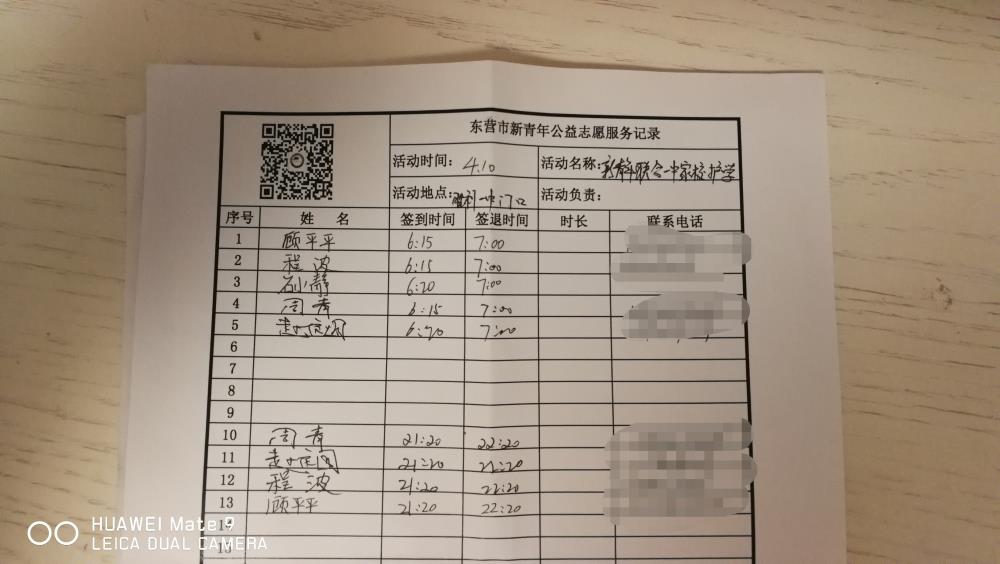 东营市新青年公益志愿服务记录
活动时间: 4.10 活动名称: 联合一中家校护学
活动地点: 一中门口 活动负责:
序号 姓 名 签到时间 签退时间 时长 联系电话
1 顾平平 6:15 7:00
2 程波 6:15 7:00
3 静 6:20 7:00
4 周青 6:15 7:00
5 6:20 7:00
6
7
8
9
10 周青 21:20 22:20
11 21:20 22:20
12 程波 21:20 22:20
13 顾平平 21:20 22:20
14
15
HUAWEI Mate 9
LEICA DUAL CAMERA